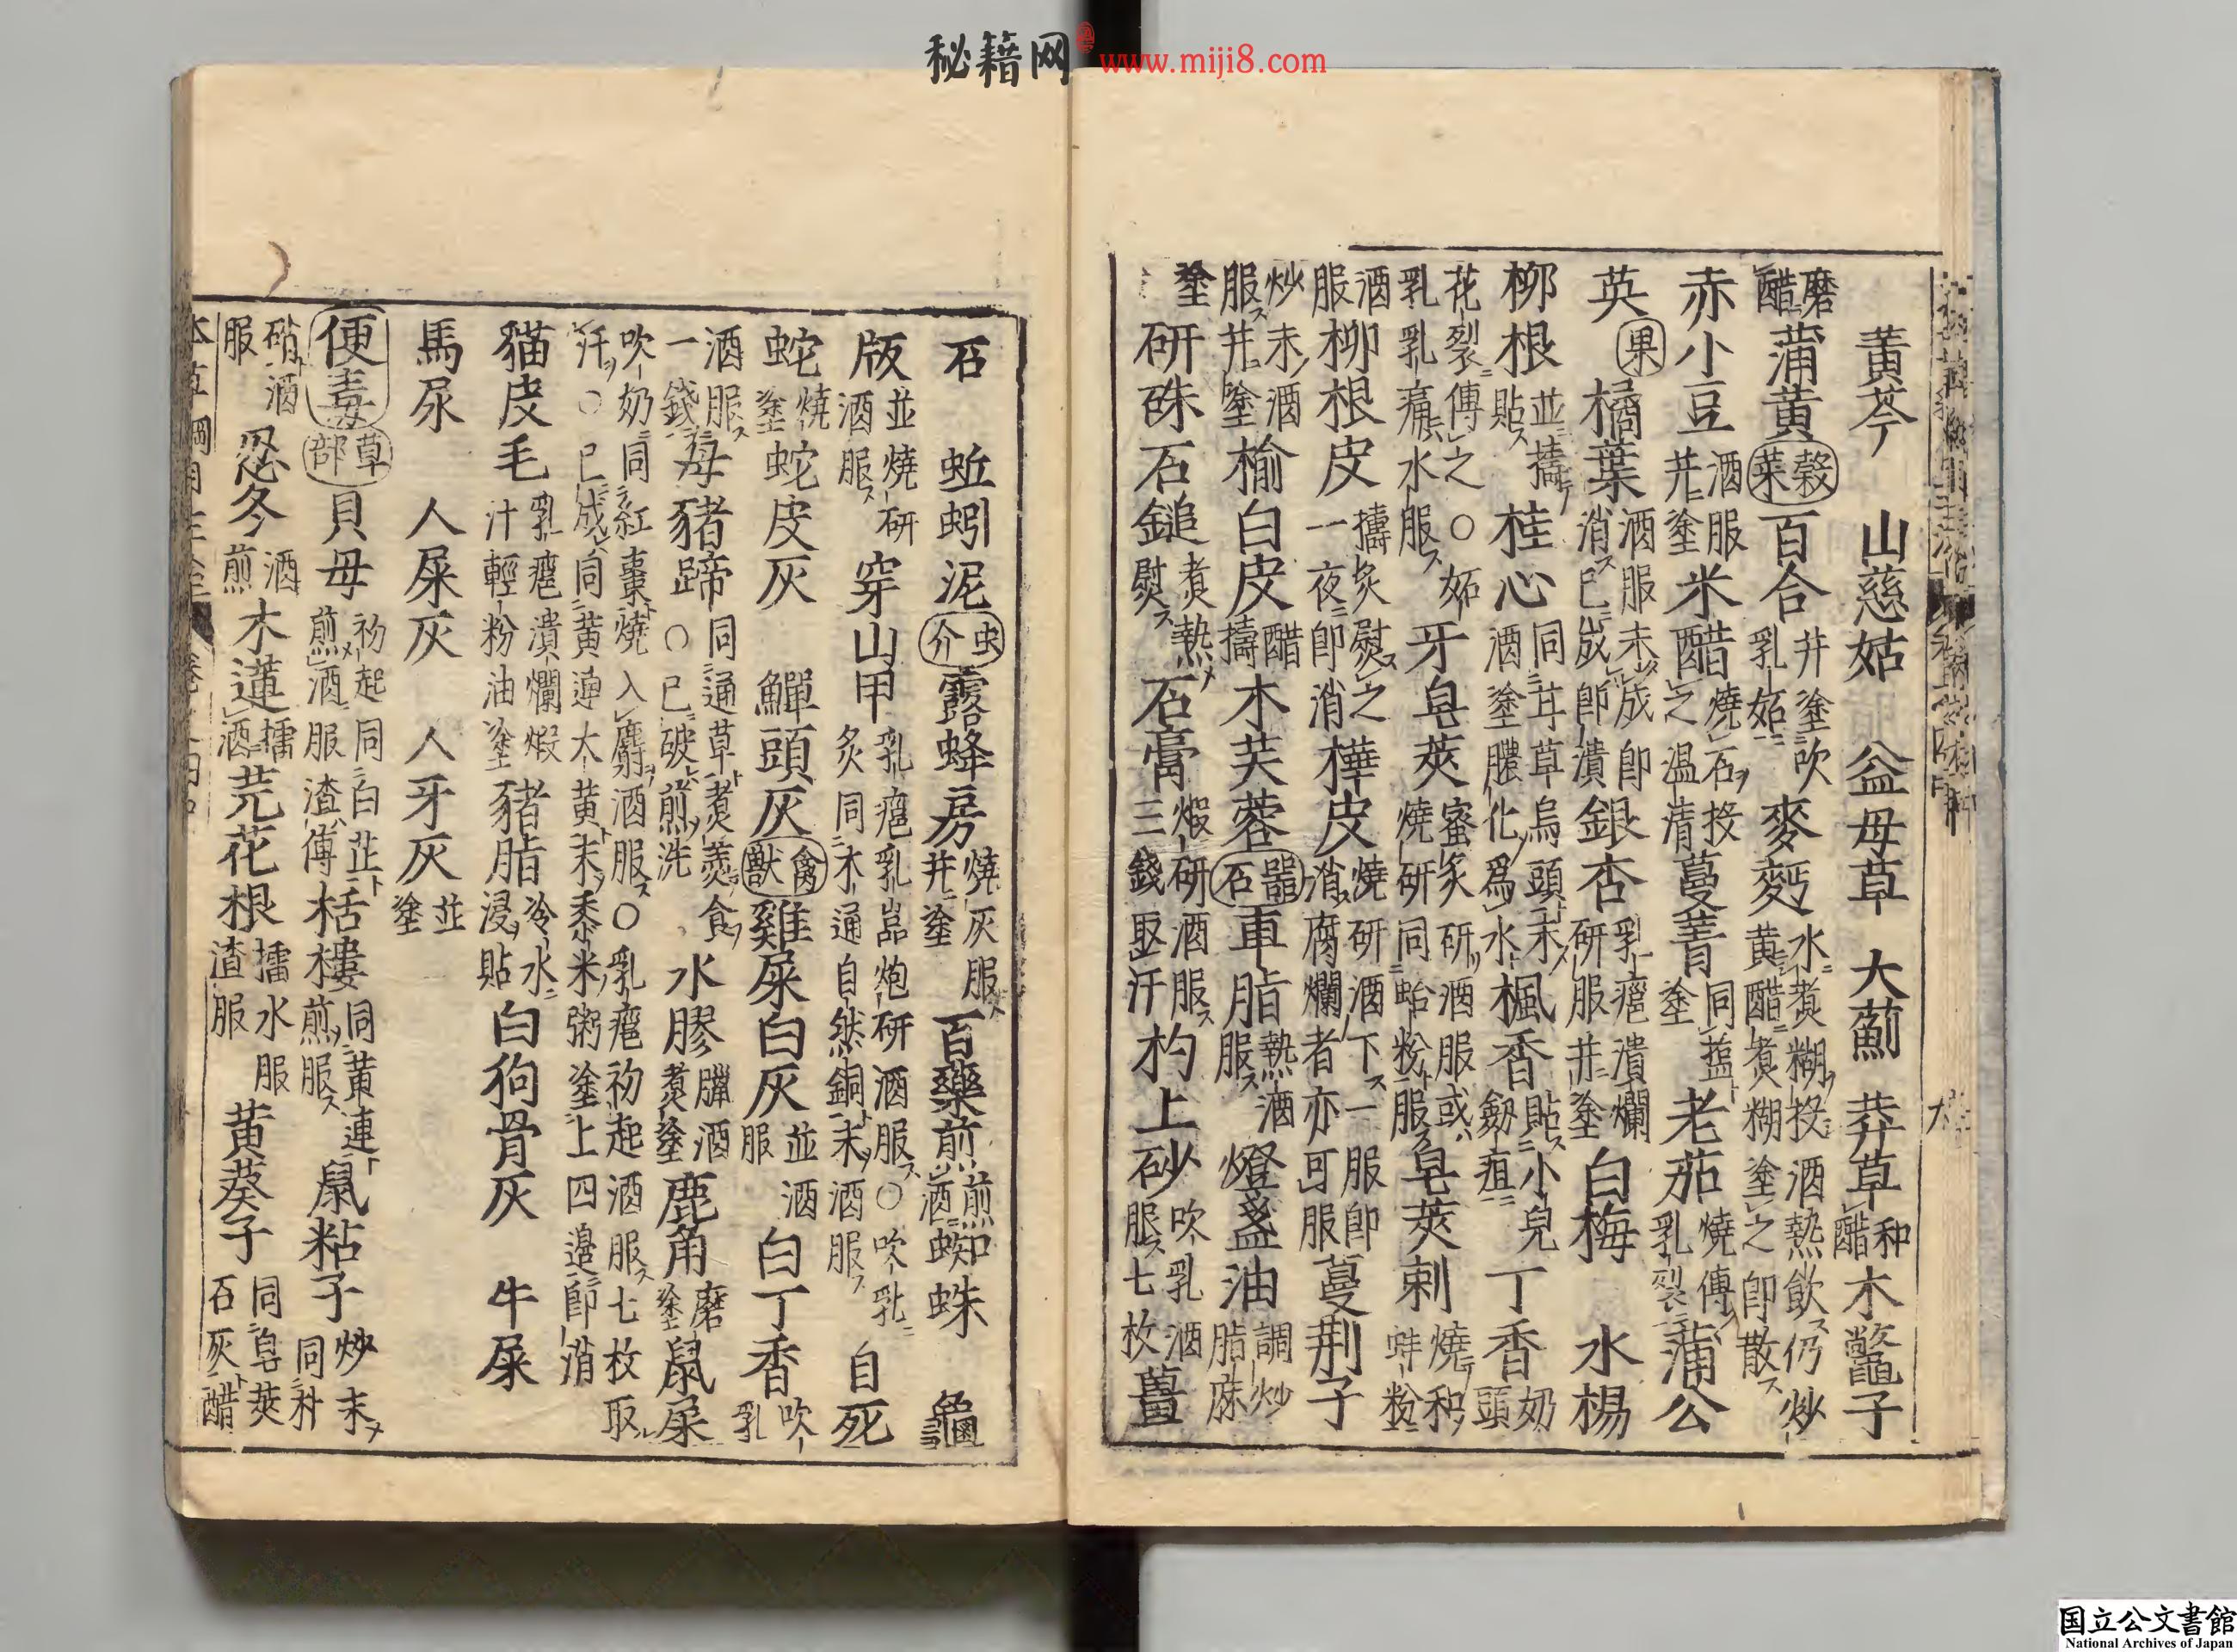 秘籍网 www.miji8.com
黃芩 山慈姑 益母草 大薊 莽草醋和木鼈子
磨醋蒲黃穀菜百合井塗吹乳妬麥麪水煮糊投酒熱飲仍炒黃醋煮糊塗之卽散
赤小豆酒服井塗米醋燒石投之溫清蔓菁同鹽塗老茄燒傅乳裂蒲公
英果橘葉酒服未成卽消已成卽潰銀杏乳癰潰爛研服井塗白梅 水楊
柳根並擣貼桂心同甘草烏頭末酒塗膿化爲水楓香貼小兒劒疽丁香奶頭
花裂傅之○妬乳乳癰水服牙皂莢蜜炙研酒服或燒研同蛤粉服皂莢刺燒和蚌粉
酒服柳根皮擣炙熨之一夜卽消樺皮燒研酒下一服卽消腐爛者亦可服蔓荆子
炒末酒服井塗榆白皮醋擣木芙蓉器石車脂熱酒服燈盞油調炒脂麻
塗研硃石鎚煮熱熨石膏煅研酒服三錢取汗杓上砂吹乳酒服七枚薑
石 蚯蚓泥虫介露蜂房燒灰服井塗百藥煎煎酒蜘蛛 龜
版並燒研酒服穿山甲乳癰乳嵓炮研酒服○吹乳炙同木通自然銅末酒服自死
蛇燒塗蛇皮灰 鱓頭灰禽獸雞屎白灰並酒服白丁香吹乳
酒服一錢母豬蹄同通草煮羹食○已破煎洗水膠臘酒煮塗鹿角磨塗鼠屎
吹奶同紅棗燒入麝酒服○乳癰初起酒服七枚取汗○已成同黃連大黃末黍米粥塗上四邊卽消
貓皮毛乳癰潰爛煅汁輕粉油塗豬脂冷水浸貼白狗骨灰 牛屎
馬尿 人屎灰 人牙灰並塗
便毒草部貝母初起同白芷煎酒服渣傅栝樓同黃連煎服鼠粘子炒末同
硝酒服忍冬酒煎木蓮擂酒芫花根擂水服渣服黃葵子同皂莢石灰醋
国立公文書館
National Archives of Japan